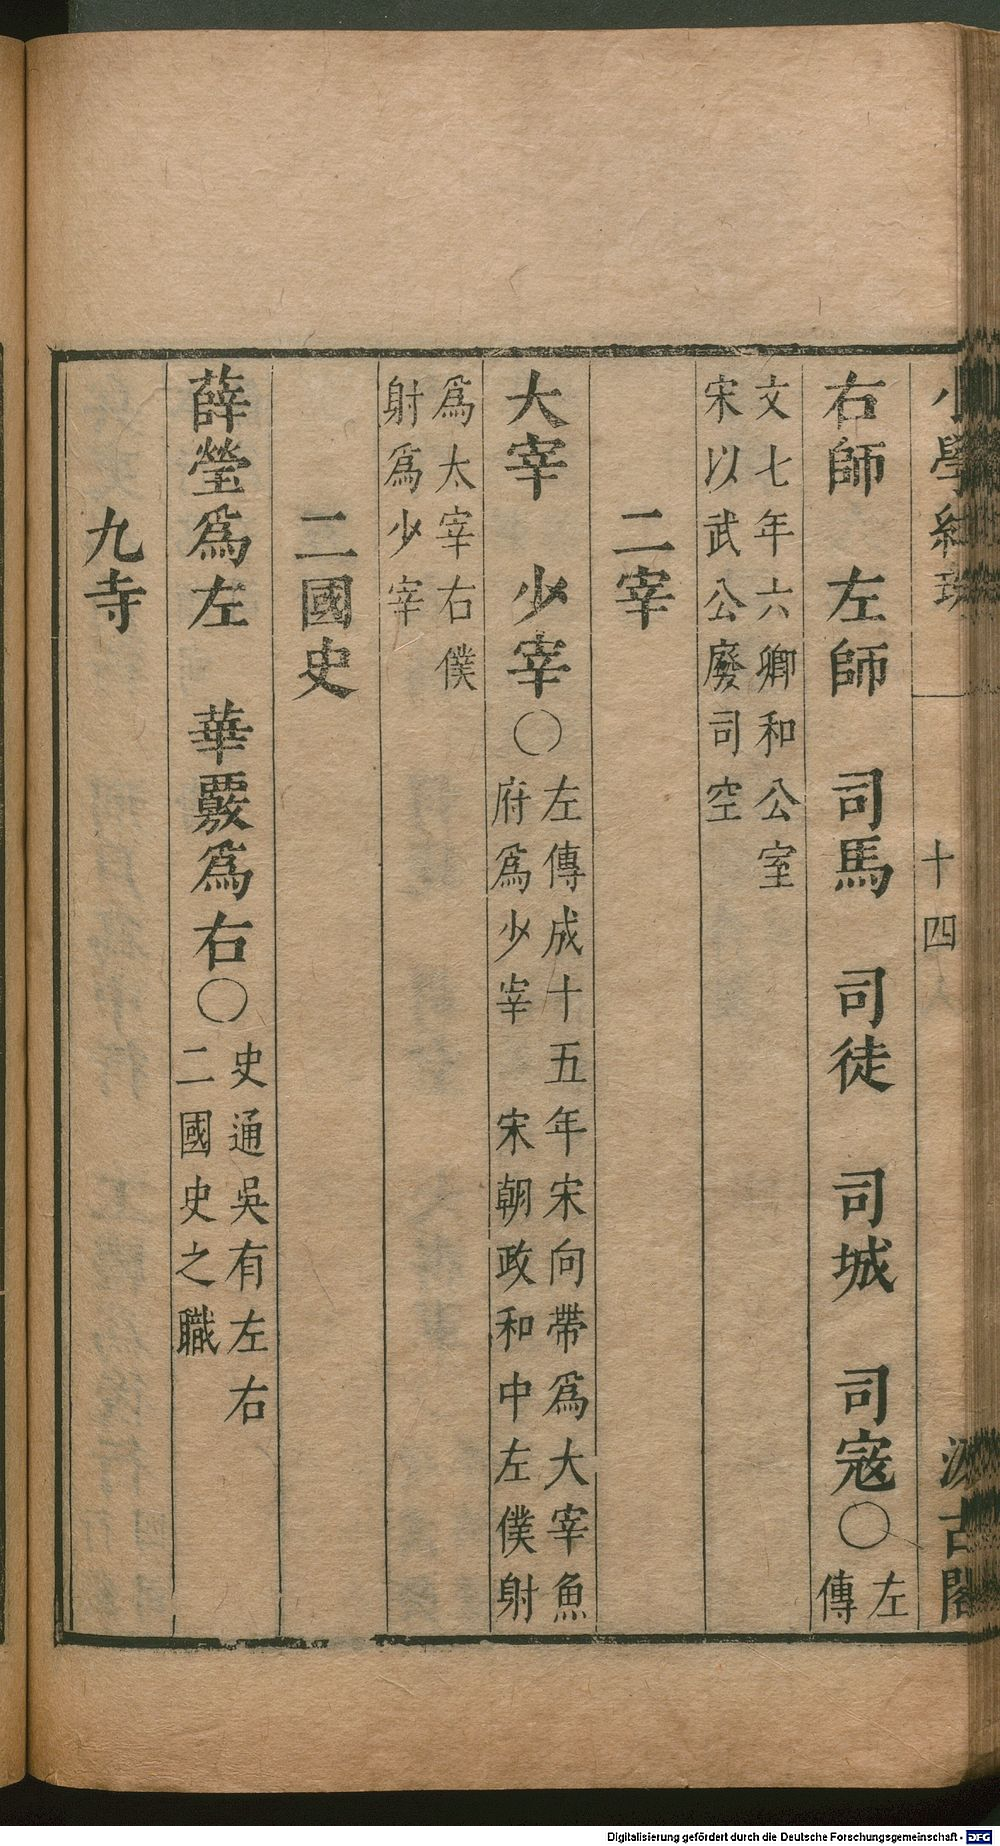 小學紺珠 十四 汲古閣
右師 左師 司馬 司徒 司城 司寇〇左
傳
文七年六卿和公室
宋以武公廢司空
二宰
大宰 少宰〇左傳成十五年宋向帶爲大宰魚
府爲少宰 宋朝政和中左僕射
爲太宰右僕
射爲少宰
二國史
薛瑩爲左 華覈爲右〇史通吳有左右
二國史之職
九寺
Digitalisierung gefördert durch die Deutsche Forschungsgemeinschaft - DFG